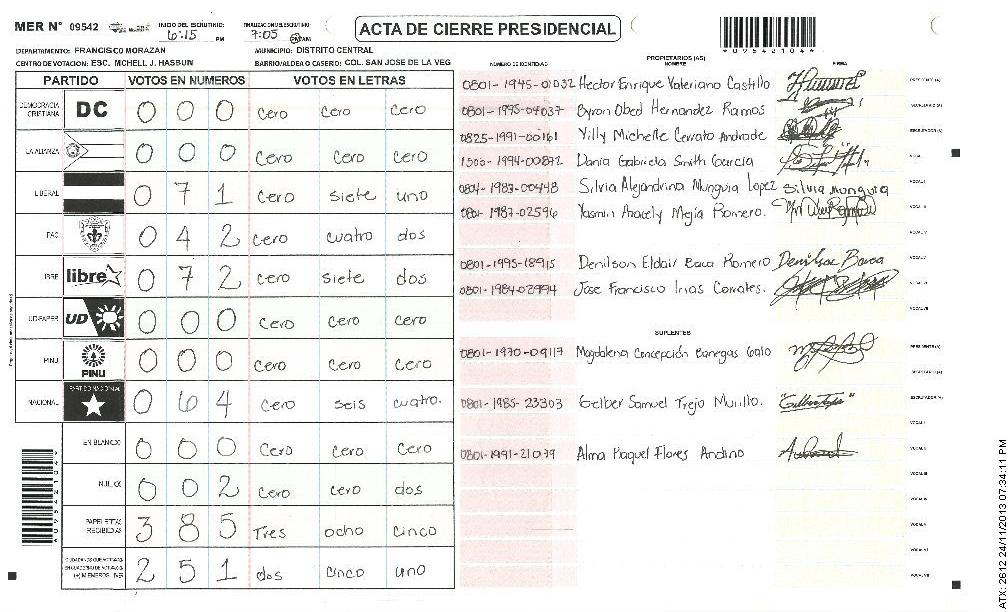 MER N° 09542 INICIO DEL ESCRUTINIO: 6:15 PM FINALIZACION DEL ESCRUTINIO: 7:05 PM AM
ACTA DE CIERRE PRESIDENCIAL
0 9 5 4 2 1 0 4
DEPARTAMENTO: FRANCISCO MORAZAN MUNICIPIO: DISTRITO CENTRAL
CENTRO DE VOTACION: ESC. MCHELL J. HASBUN BARRIO/ALDEA O CASERIO: COL. SAN JOSE DE LA VEG
PARTIDO VOTOS EN NUMEROS VOTOS EN LETRAS
DEMOCRACIA CRISTIANA DC 0 0 0 cero cero cero
LA ALIANZA 0 0 0 cero cero cero
LIBERAL 0 7 1 cero siete uno
PAC 0 4 2 cero cuatro dos
LIBRE libre 0 7 2 cero siete dos
UD-FAPER UD 0 0 0 cero cero cero
PINU PINU 0 0 0 cero cero cero
NACIONAL PARTIDO NACIONAL 0 6 4 cero seis cuatro.
EN BLANCO 0 0 0 cero cero cero
NULOS 0 0 2 cero cero dos
PAPELETAS RECIBIDAS 3 8 5 Tres ocho cinco
2 5 1 dos cinco uno
NUMERO DE IDENTIDAD PROPIETARIOS (AS) NOMBRE FIRMA
0801-1945-01032 Hector Enrique Valeriano Castillo PRESIDENTE (A)
0801-1995-04037 Byron Obed Hernandez Ramos SECRETARIO (A)
0825-1991-00161 Yilly Michelle Cerrato Andrade ESCRUTADOR (A)
1506-1994-00892 Dania Gabriela Smith Garcia VOCAL I
0804-1983-00448 Silvia Alejandrina Munguia Lopez Silvia Munguia VOCAL II
0801-1987-02596 Yasmin Aracely Mejia Romero. VOCAL III
VOCAL IV
0801-1995-18915 Denilson Eldair Baca Romero Denilson Baca VOCAL V
0801-1984-02994 Jose Francisco Irias Corrales. VOCAL VI
VOCAL VII
SUPLENTES
0801-1970-09117 Magdalena Concepción Banegas Galo PRESIDENTE (A)
SECRETARIO (A)
0801-1985-23303 Gelber Samuel Trejo Murillo. ESCRUTADOR (A)
VOCAL I
0801-1991-21079 Alma Raquel Flores Andino VOCAL II
VOCAL III
VOCAL IV
VOCAL V
VOCAL VI
VOCAL VII
ATX: 2612 24/11/2013 07:34:11 PM